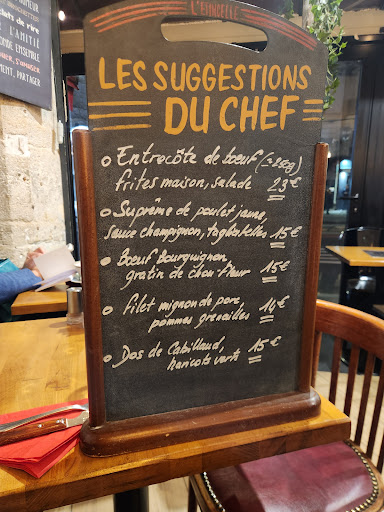 L'ECUVELLE
LES SUGGESTIONS
DU CHEF
Entrecôte de bœuf (≈250g)
frites maison, salade 23€
Suprême de poulet jaune,
sauce champignon, tagliatelles 15€
Bœuf Bourguignon,
gratin de chou-fleur 15€
Filet mignon de porc,
pommes grenailles 14€
Dos de Cabillaud,
haricots verts 15€
ÉCLATS DE RIRE
L'AMITIÉ
MONDE ENSEMBLE
PARTAGER